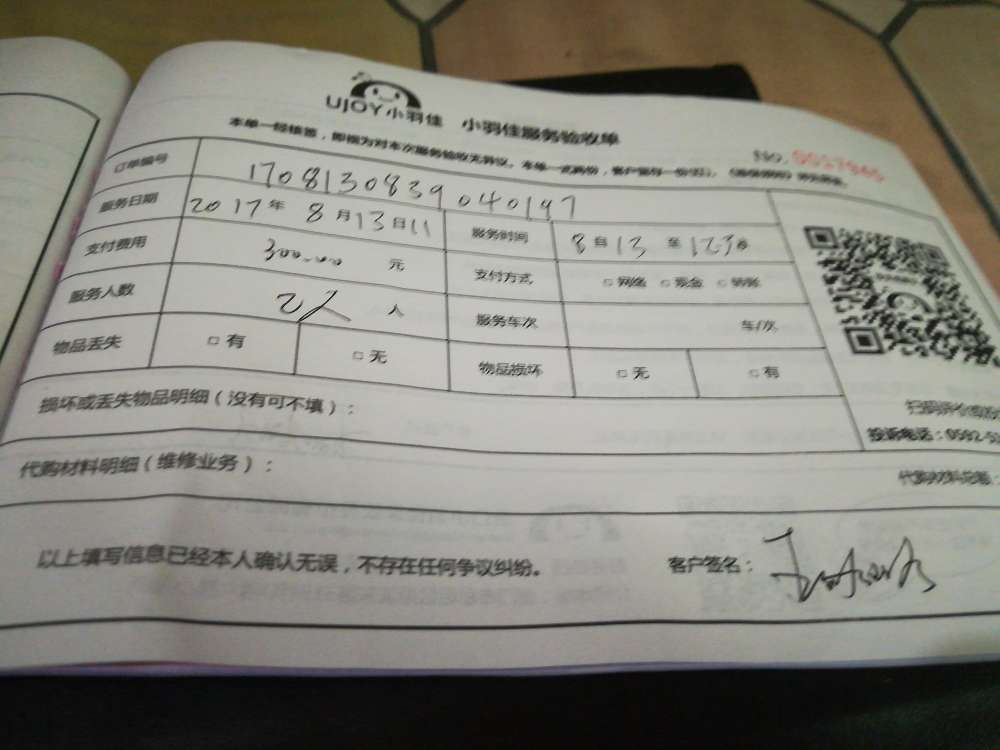 UJOY小羽佳 小羽佳服务验收单
NO.
本单一经核签，即视为对本次服务验收无异议。本单一式两份，客户留存一份
订单编号 1708130839040197
服务日期 2017年8月13日11 服务时间 8 自 13 至
支付费用 300.00 元 支付方式 □网络 □现金 □转账
服务人数 2人 人 服务车次 车/次
物品丢失 □有 □无 物品损坏 □无 □有
损坏或丢失物品明细（没有可不填）：
投诉电话：0592-5
代购材料明细（维修业务）：
代购材料总额：
以上填写信息已经本人确认无误，不存在任何争议纠纷。 客户签名：